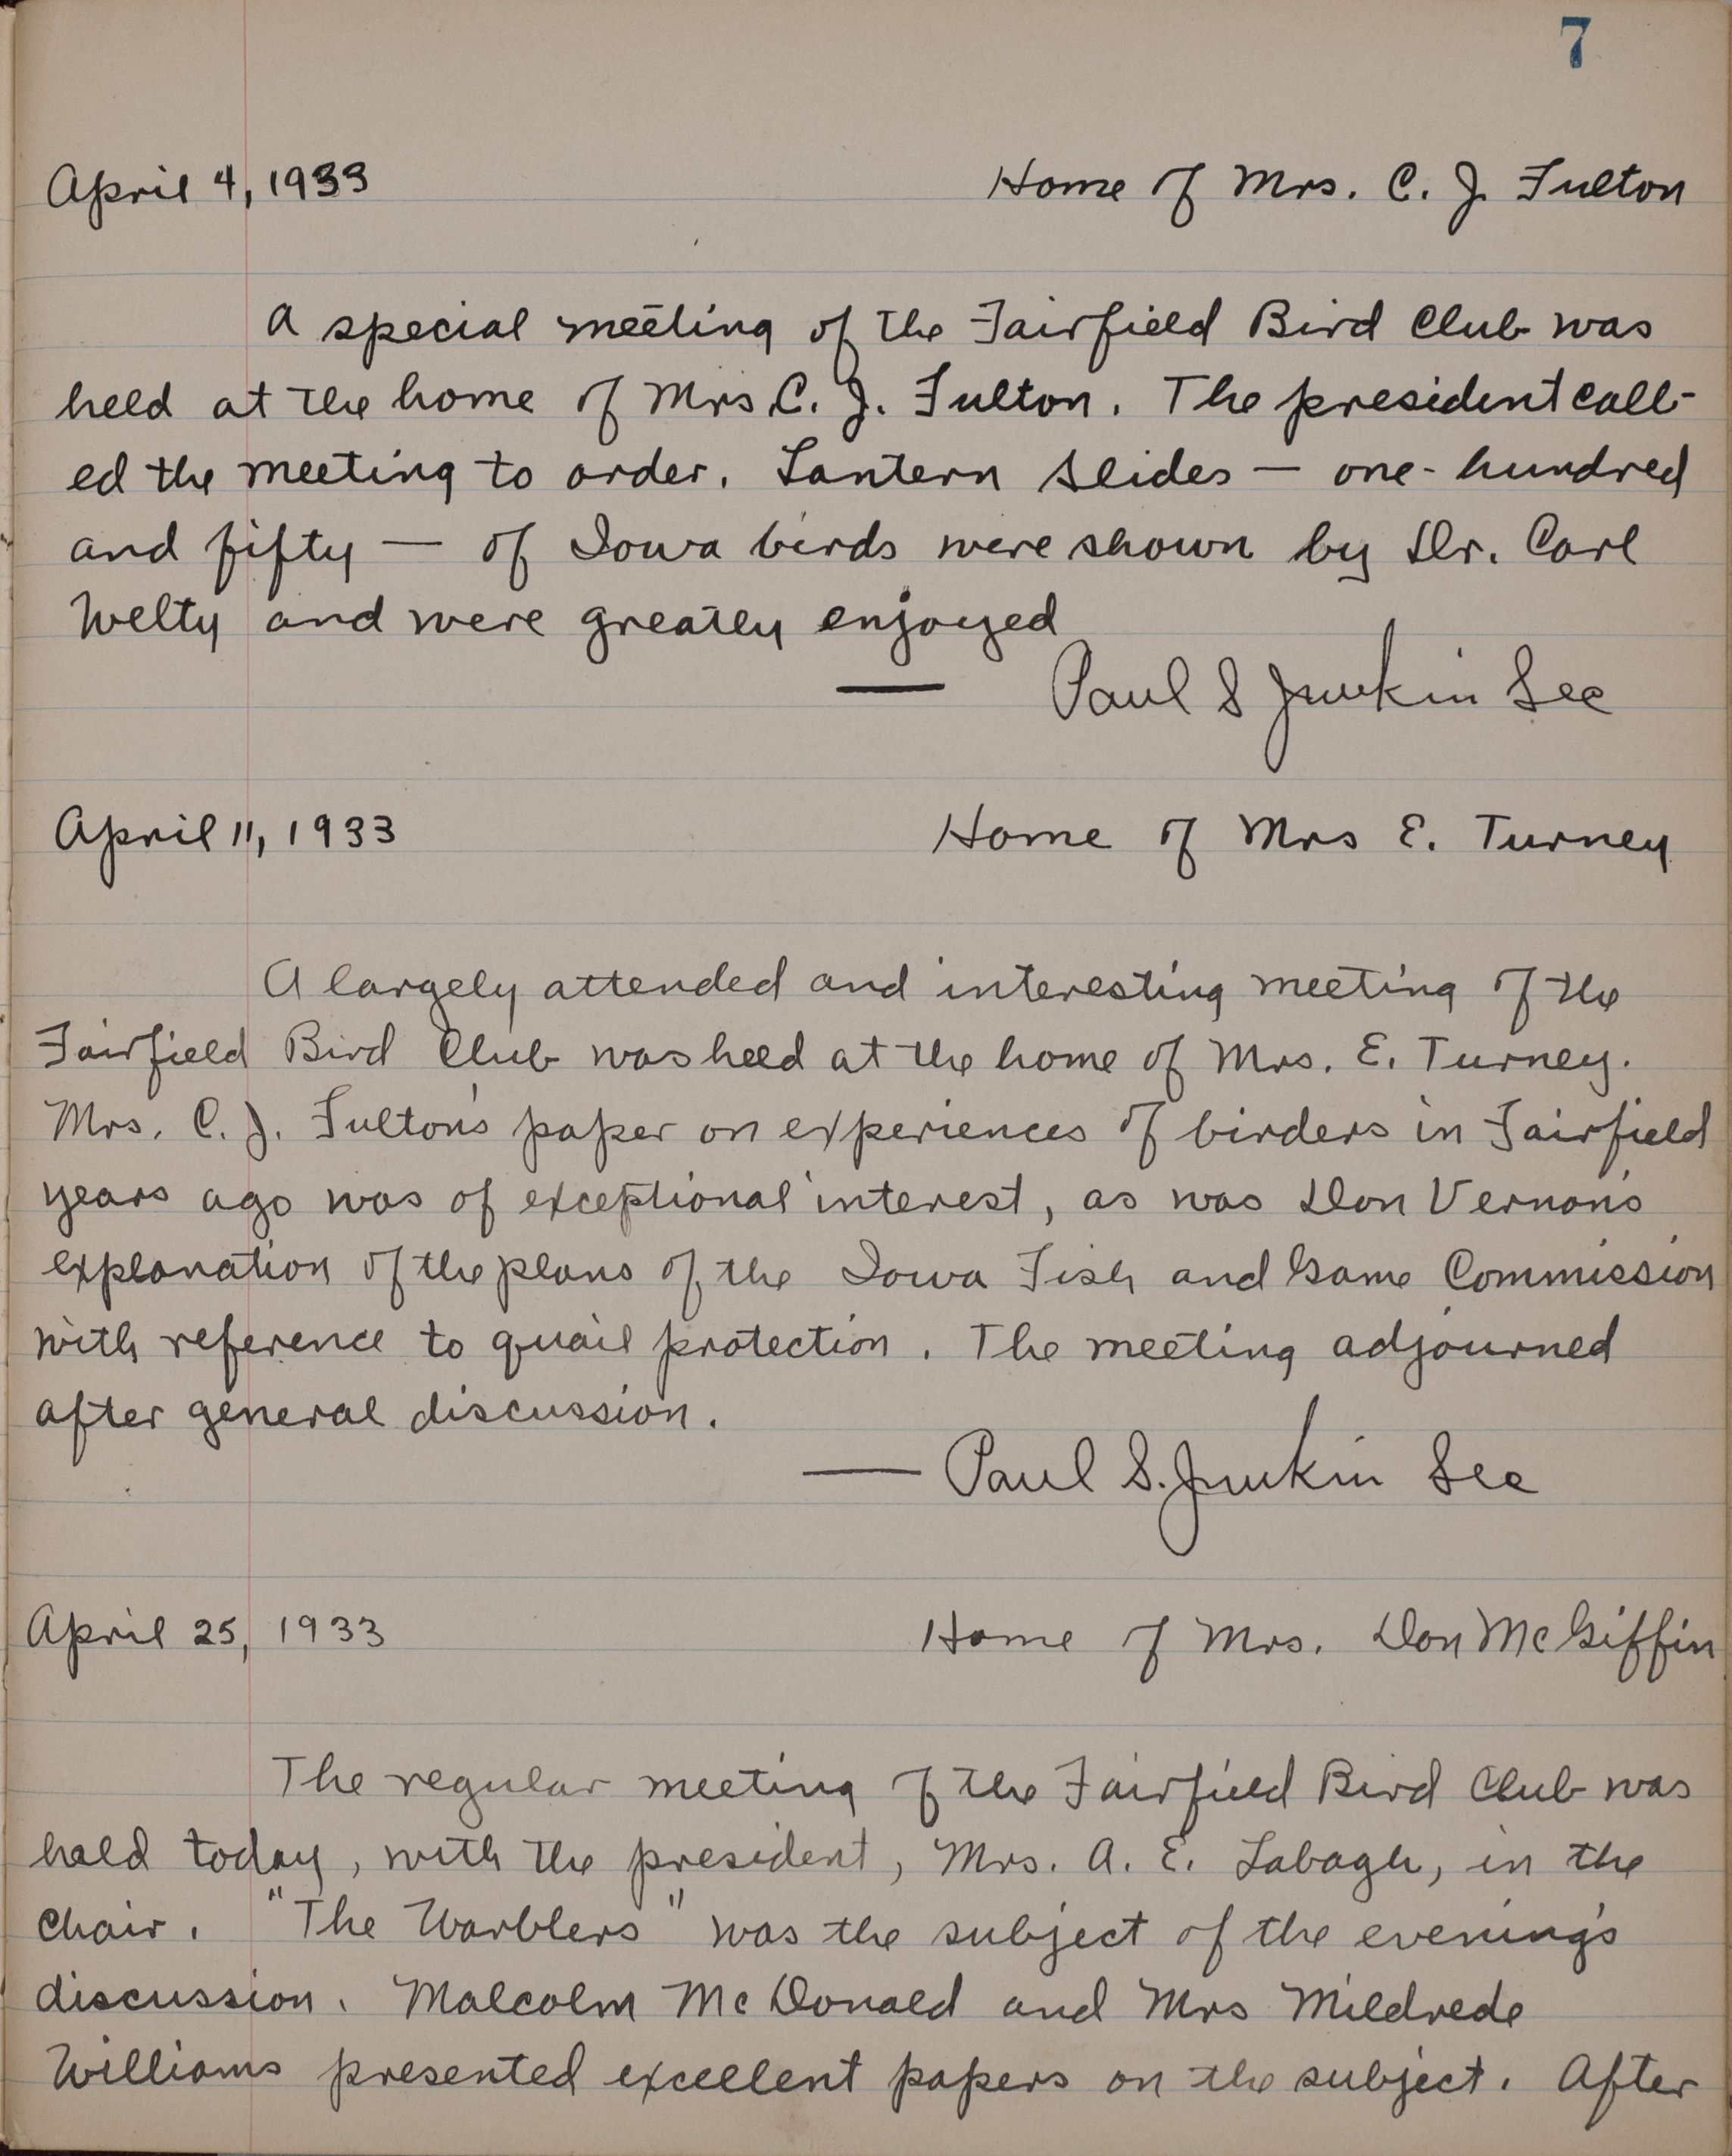 7
April 4, 1933 Home of Mrs. C. J. Fulton
A special meeting of the Fairfield Bird Club was
held at the home of Mrs C. J. Fulton. The president call-
ed the meeting to order. Lantern slides — one-hundred
and fifty — of Iowa birds were shown by Dr. Carl
Welty and were greatly enjoyed
— Paul S Junkin Sec
April 11, 1933 Home of Mrs E. Turney
A largely attended and interesting meeting of the
Fairfield Bird Club was held at the home of Mrs. E. Turney.
Mrs. C. J. Fulton's paper on experiences of birders in Fairfield
years ago was of exceptional interest, as was Don Vernon's
explanation of the plans of the Iowa Fish and Game Commission
with reference to quail protection. The meeting adjourned
after general discussion.
— Paul S. Junkin Sec
April 25, 1933 Home of Mrs. Don McGiffin
The regular meeting of the Fairfield Bird Club was
held today, with the president, Mrs. A. E. Labagh, in the
chair. "The Warblers" was the subject of the evening's
discussion. Malcolm McDonald and Mrs Mildrede
Williams presented excellent papers on the subject. After